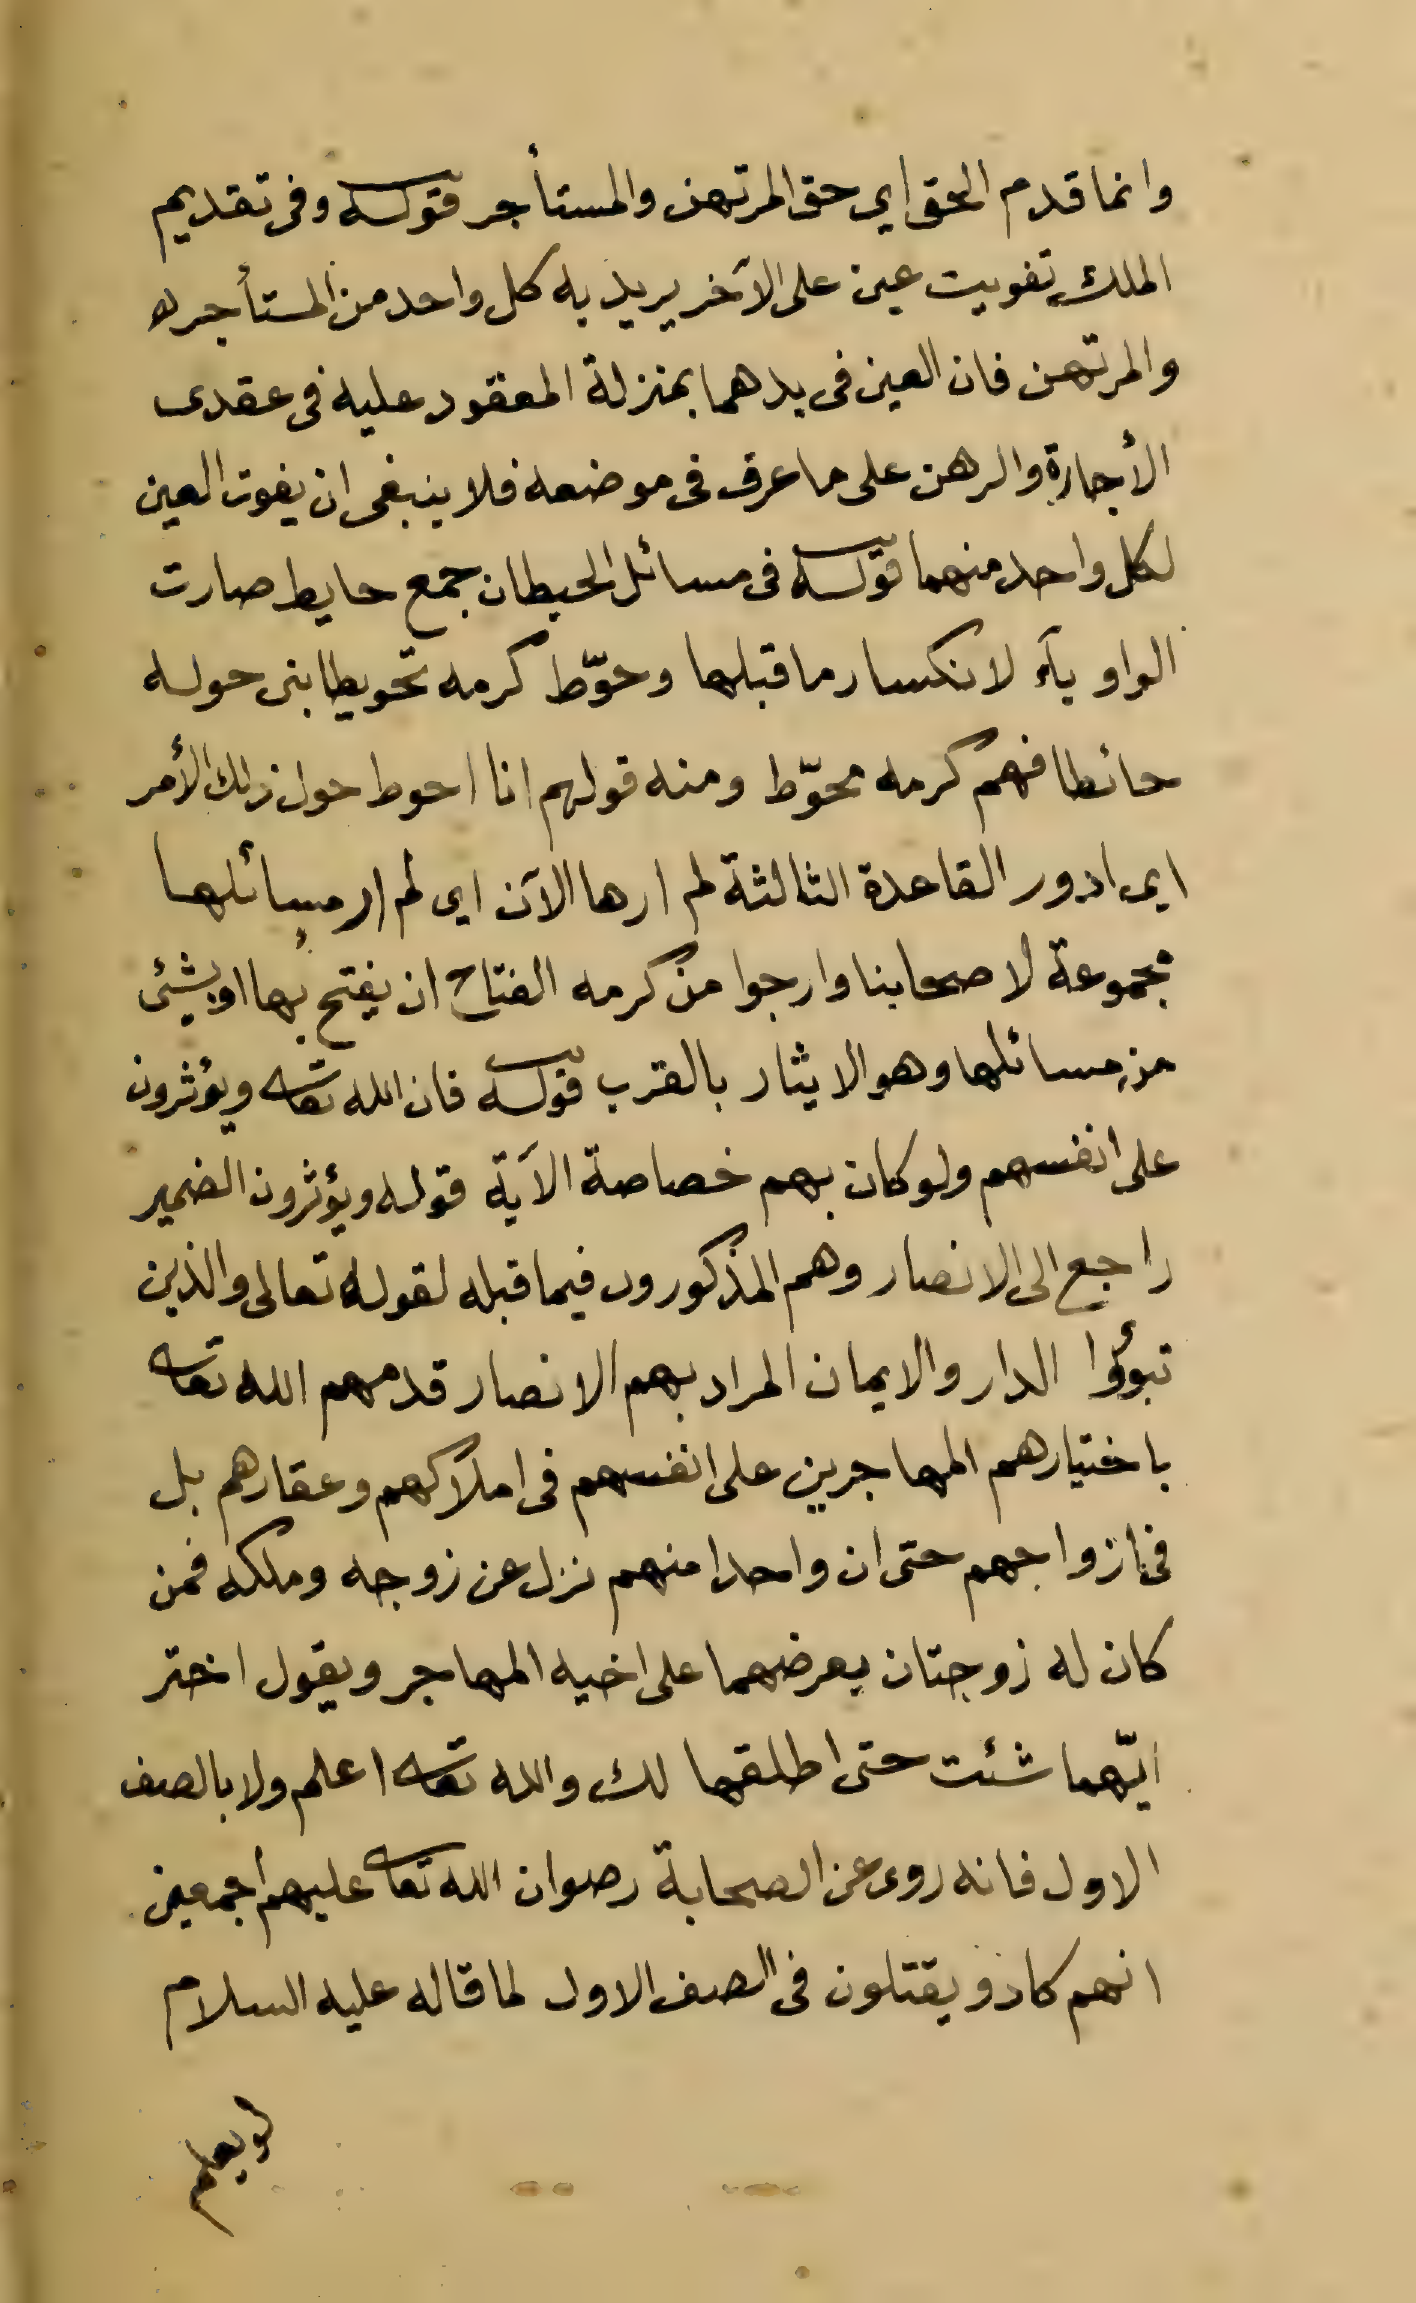 وانما قدم الحق اي حق المرتهن والمستأجر قوله وفى تقديم
الملك تفويت عين على الآخر يريد به كل واحد من المستأجر
والمرتهن فان العين فى يدهما بمنزلة المعقود عليه فى عقدى
الأجارة والرهن على ما عرف فى موضعه فلا ينبغى ان يفوت العين
لكل واحد منهما قوله فى مسائل الحيطان جمع حايط صارت
الواو يآء لانكسار ما قبلها وحوّط كرمه تحويطا بنى حوله
حائطا فهم كرمه محوّط ومنه قولهم انا احوط حول ذلك الأمر
اى ادور القاعدة الثالثة لم ارها الآن اى لم ار مسائلها
مجموعة لاصحابنا وارجوا من كرمه الفتاح ان يفتح بها او بشئى
من مسائلها وهو الايثار بالقرب قوله فان الله تعالى ويؤثرون
على انفسهم ولو كان بهم خصاصة الآية قوله ويؤثرون الضمير
راجع الى الانصار وهم المذكورون فيما قبله لقوله تعالى والذين
تبوؤا الدار والايمان المراد بهم الانصار قدمهم الله تعالى
باختيارهم المهاجرين على انفسهم فى املاكهم وعقارهم بل
فى ازواجهم حتى ان واحدا منهم نزل عن زوجه وملكه فمن
كان له زوجتان يعرضهما على اخيه المهاجر ويقول اختر
ايّهما شئت حتى اطلقها لك والله تعالى اعلم ولا بالصف
الاول فانه روى عن الصحابة رضوان الله تعالى عليهم أجمعين
انهم كادو يقتلون فى الصف الاول لما قاله عليه السلام
لو يعلم